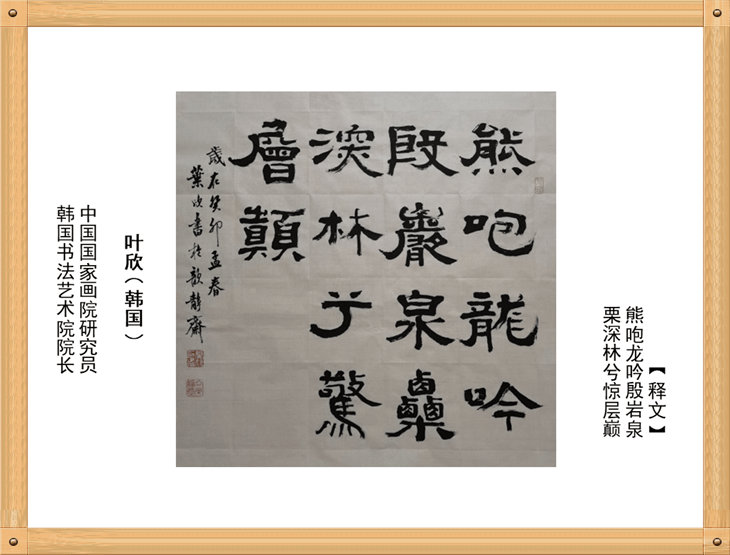 【释文】
熊咆龙吟殷岩泉
栗深林兮惊层巅
熊咆龍吟
殷巖泉栗
深林兮驚
層顛
歲在癸卯孟春
葉欣書於歆靜齋
叶欣（韩国）
中国国家画院研究员
韩国书法艺术院院长